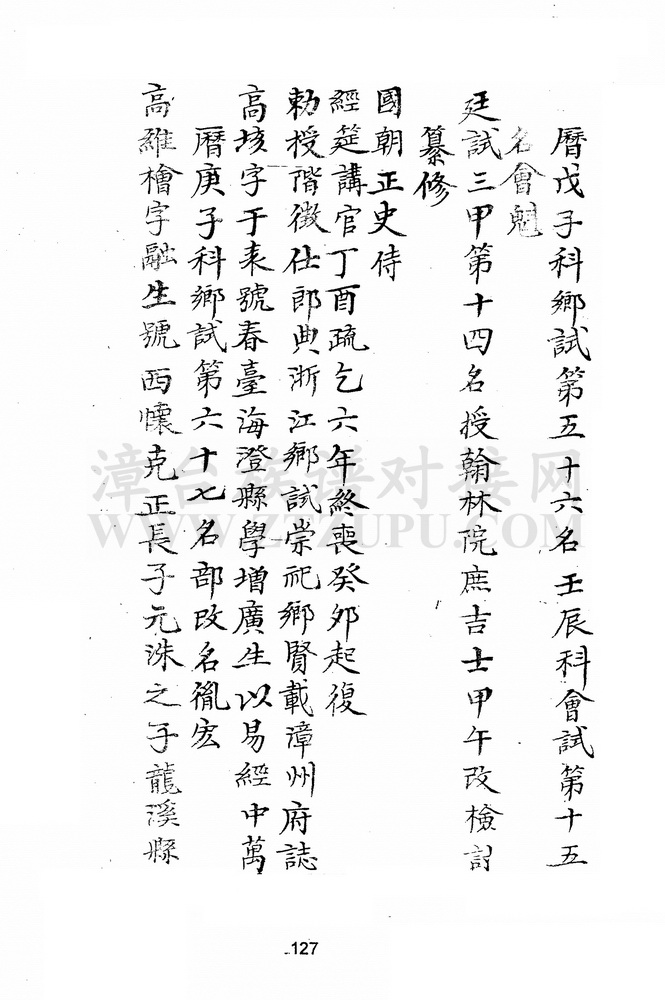 曆戊子科鄉試第五十六名壬辰科會試第十五
名會魁
廷試三甲第十四名授翰林院庶吉士甲午改檢討
纂修
國朝正史侍
經筵講官丁酉疏乞六年終喪癸卯起復
勅授階徵仕郎典浙江鄉試崇祀鄉賢載漳州府誌
高垓字于表號春臺海澄縣學增廣生以易經中萬
曆庚子科鄉試第六十七名部改名胤宏
高維檜字融生號西懷克正長子元洙之子龍溪縣
漳台族谱对接网
WWW.ZTZUPU.COM
127